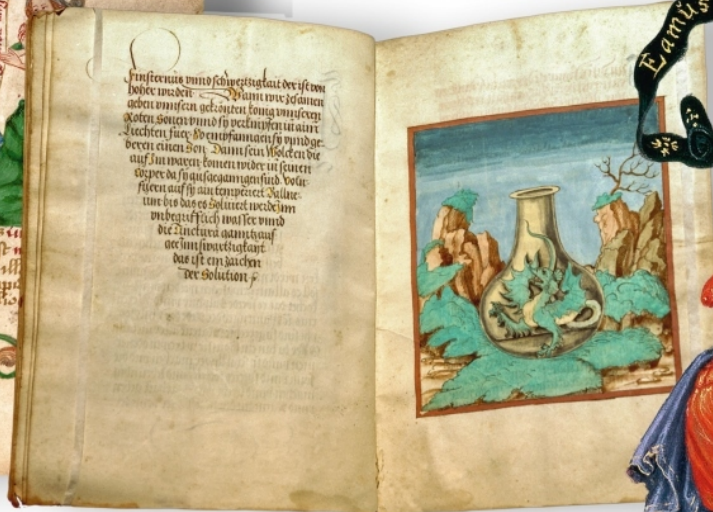 finsternus vnnd schwertzigkait der ist von
hoher wirden Wann wir zesamen
geben vnnsern gekrönten konig vnnserer
Roten Sonen vnnd sy verknüpfen in aim
Liechten fuer So entpfanngen sy vnnd ge¬
beren einen Son Dann sein Wolcken die
auf Im waren komen wider in seinen
corper da sy ausgeganngen sind
auf sy ain temperiert
bis das es Soluiert werde Im
vnbegrifflich wasser vnnd
die Tinctura ganntz auf
gee Im swartzigkait
das ist ein zaichen
der Solution
Eamus